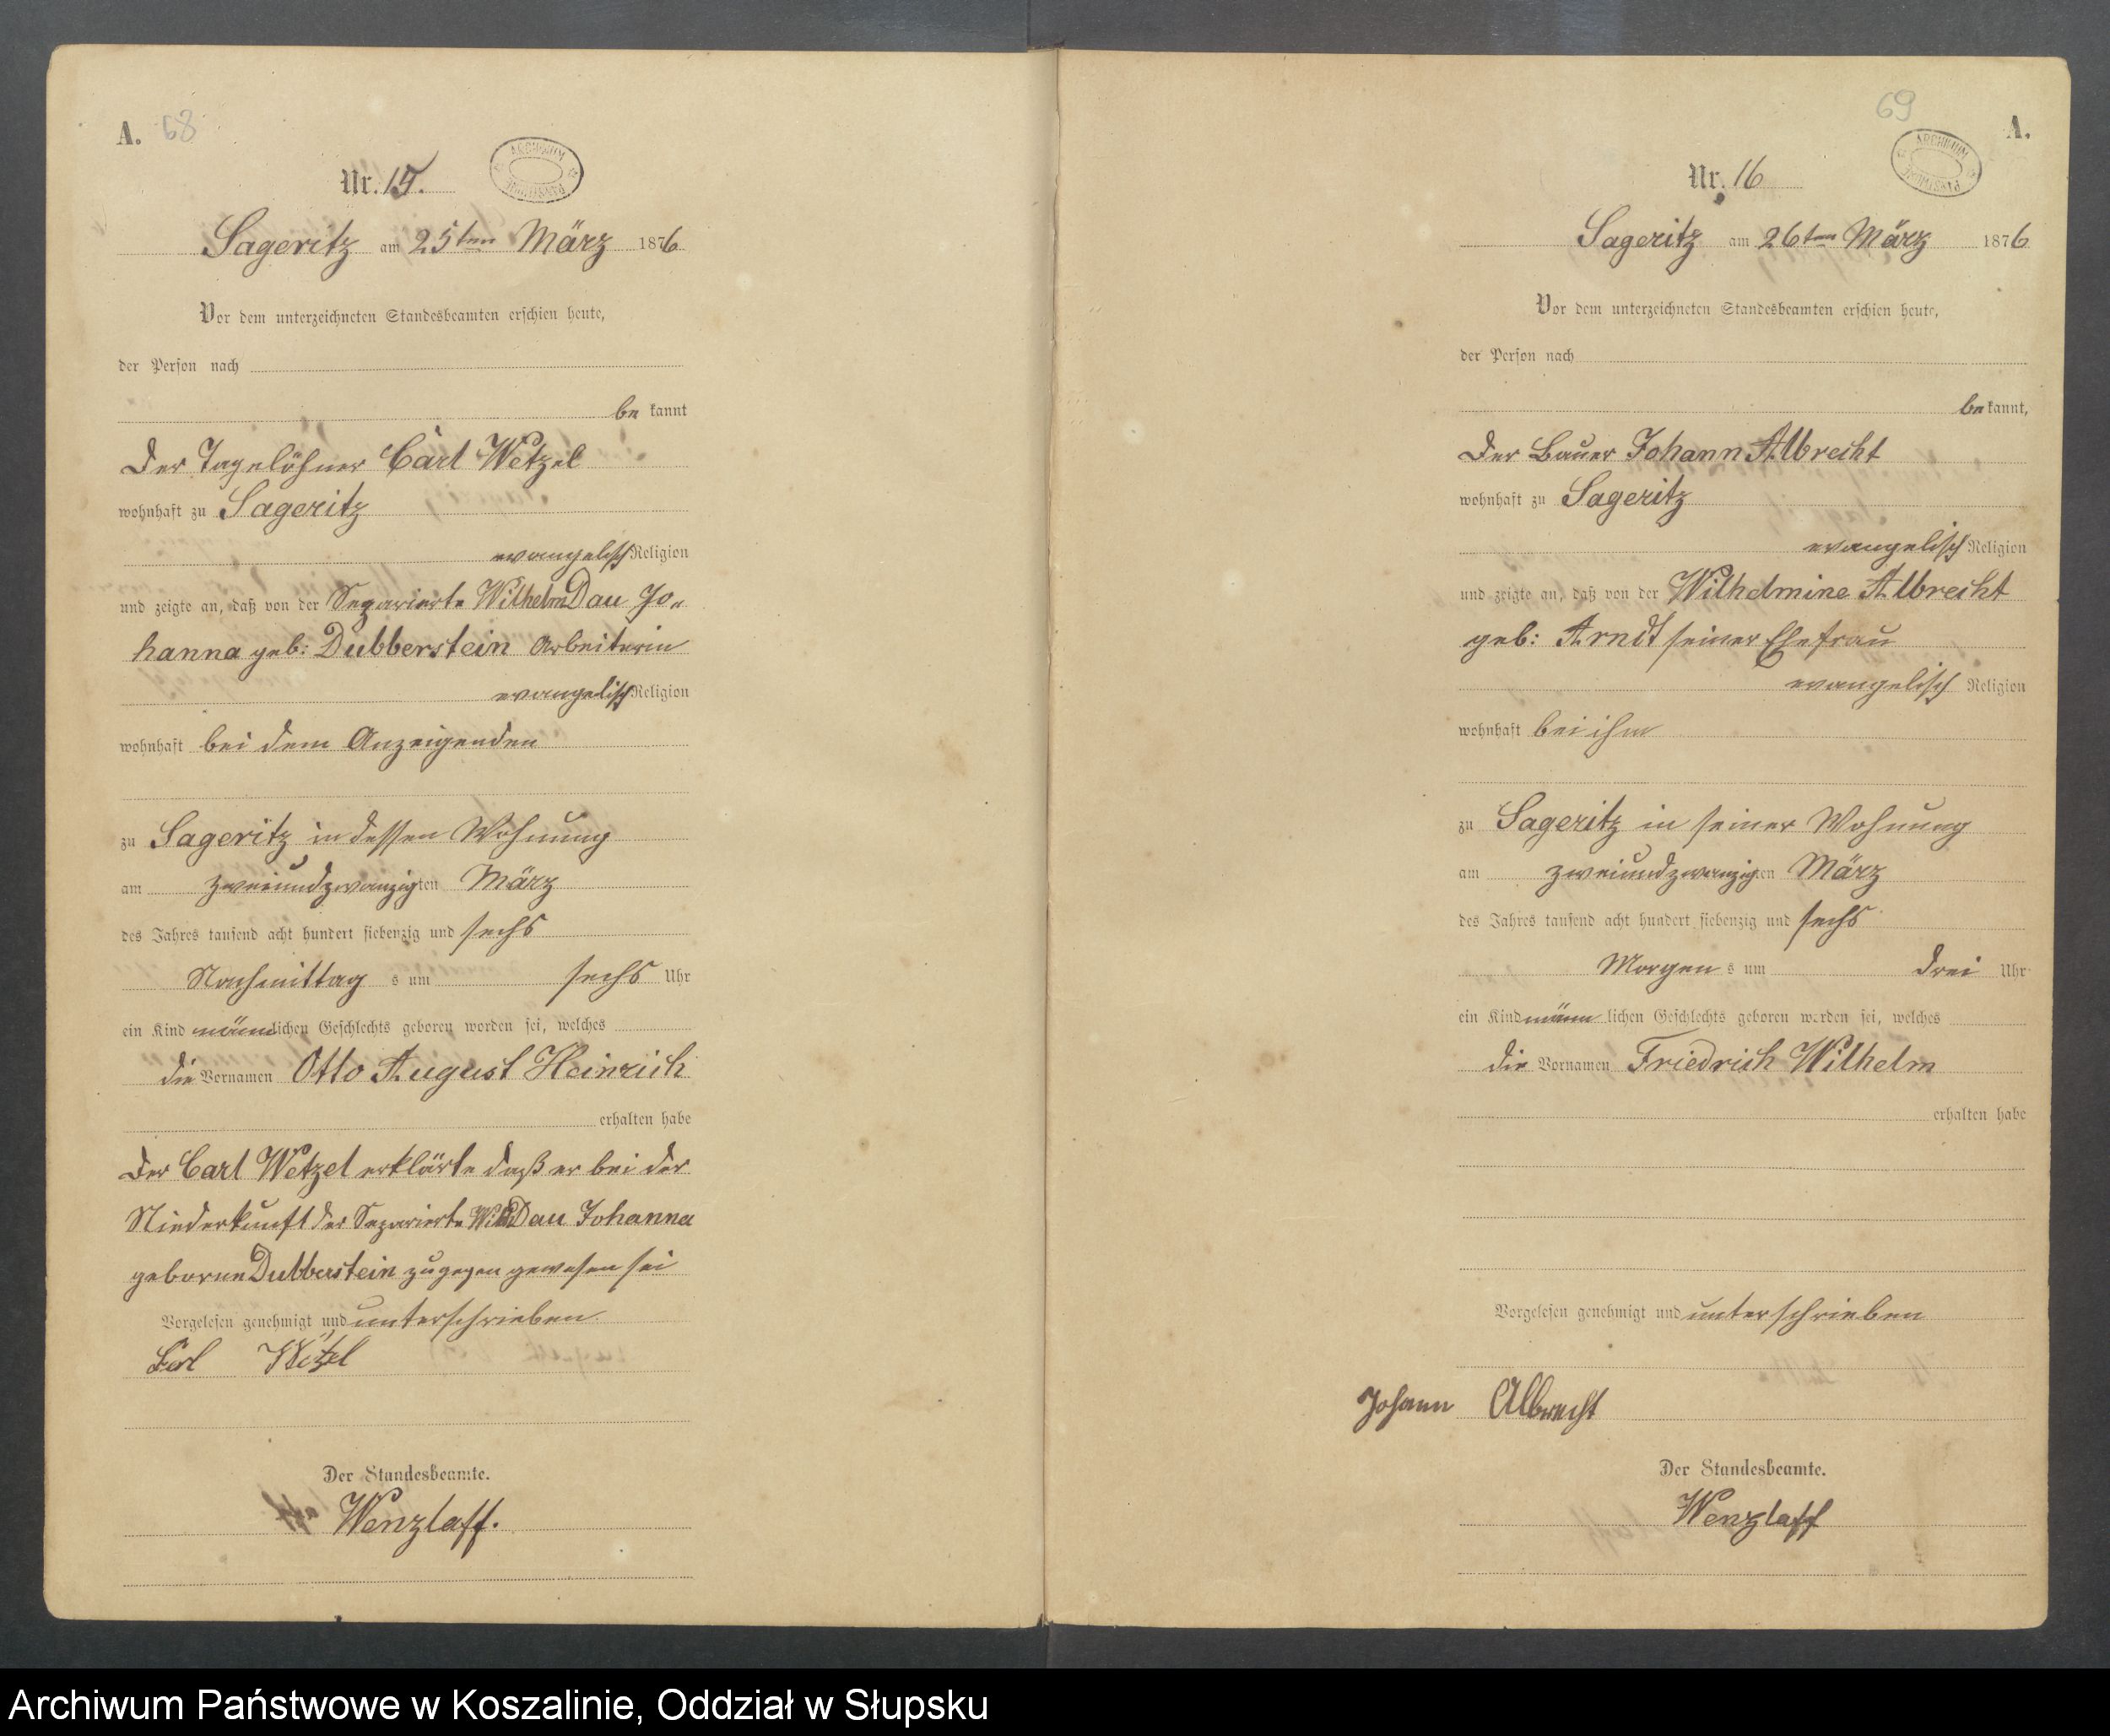 A. 68
Nr. 15.
ARCHIWUM PAŃSTWOWE
Sageritz am 25ten März 1876
Vor dem unterzeichneten Standesbeamten erschien heute,
der Person nach
be kannt
Der Tagelöhner Carl Wetzel
wohnhaft zu Sageritz
evangelisch Religion
und zeigte an, daß von der Separierte Wilhelm Dau Jo„
hanna geb: Dubberstein Arbeiterin
evangelisch Religion
wohnhaft bei dem Anzeigenden
zu Sageritz in dessen Wohnung
am zweiundzwanzigten März
des Jahres tausend acht hundert siebenzig und sechs
Nachmittag s um sechs Uhr
ein Kind männlichen Geschlechts geboren worden sei, welches
die Vornamen Otto August Heinrich
erhalten habe
Der Carl Wetzel erklärte daß er bei der
Niederkunft der Separierte Dau Johanna
geborene Dubberstein zugegen gewesen sei
Vorgelesen genehmigt und unterschrieben
Wetzel
Der Standesbeamte.
Wenzlaff.
69
A.
Nr. 16
ARCHIWUM PAŃSTWOWE
Sageritz am 26ten März 1876
Vor dem unterzeichneten Standesbeamten erschien heute,
der Person nach
be kannt,
Der Bauer Johann Albrecht
wohnhaft zu Sageritz
evangelisch Religion
und zeigte an, daß von der Wilhelmine Albrecht
geb: Arndt seiner Ehefrau
evangelisch Religion
wohnhaft bei ihm
zu Sageritz in seiner Wohnung
am zweiundzwanzigten März
des Jahres tausend acht hundert siebenzig und sechs
Morgen s um drei Uhr
ein Kind männ lichen Geschlechts geboren worden sei, welches
die Vornamen Friedrich Wilhelm
erhalten habe
Vorgelesen genehmigt und unterschrieben
Johann Albrecht
Der Standesbeamte.
Wenzlaff
Archiwum Państwowe w Koszalinie, Oddział w Słupsku